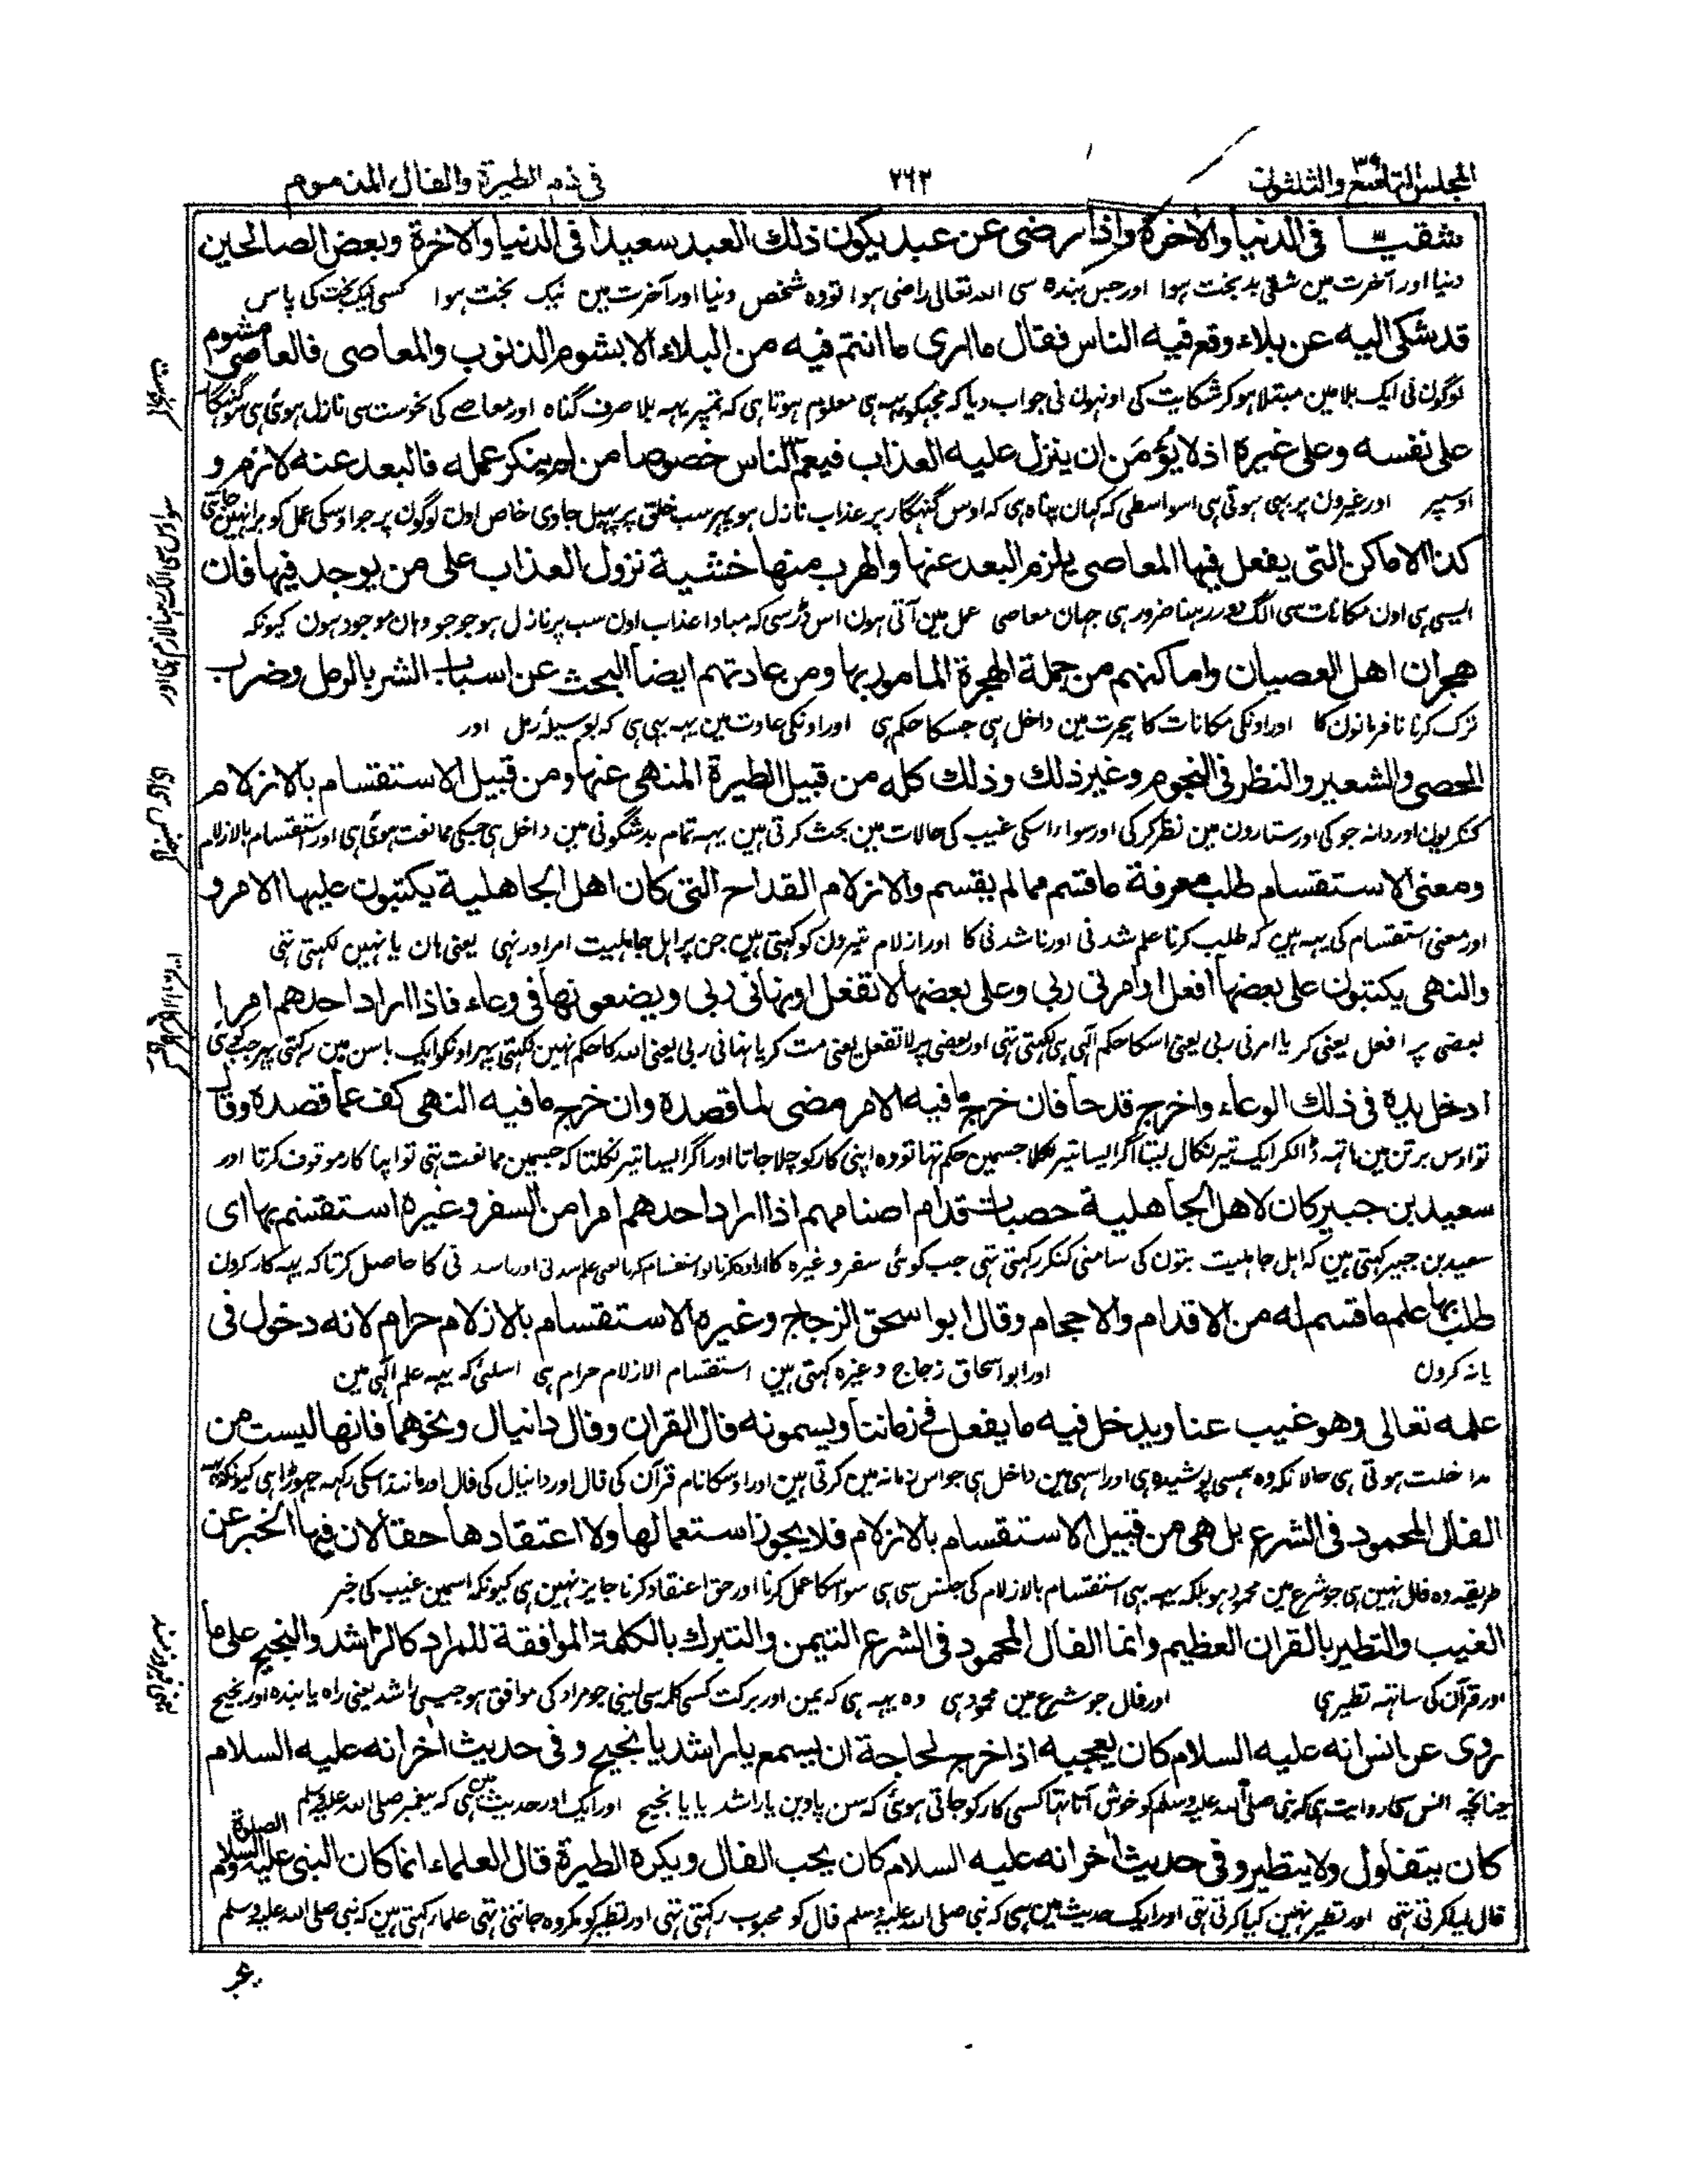 المجلس التاسع والثلثون ۳۹
۲۶۲
فی ذم الطیرة والفال المذموم
شقیا فی الدنیا والاخرة واذا رضی عن عبد یکون ذلك العبد سعیدا فی الدنیا والاخرة وبعض الصالحین
دنیا اور آخرت مین شقی بدبخت ہوا اور جس بندہ سی اللہ تعالی راضی ہوا تو وہ شخص دنیا اور آخرت مین نیک بخت ہوا کسی نیک بخت کی پاس
قد شکی الیه عن بلاء وقع فیه الناس فقال ما اری ما انتم فیه من البلاء الا بشوم الذنوب والمعاصی فالعاصی مشوم
لوگون نی ایک بلا مین مبتلا ہو کر شکایت کی اونہون نی جواب دیا کہ مجہکو یہہ ہی معلوم ہوتا ہی کہ تمپر یہہ بلا صرف گناہ اور معاصی کی نحوست سی نازل ہوئی ہی سو گنہگار
علی نفسه وعلی غیره اذ لا یؤمن ان ینزل علیه العذاب فیعم الناس خصوصا من لم ینکر عمله فالبعد عنه لازم و
اوسپر اور غیرون پر بہی ہوتی ہی اسواسطی کہ کہان پناہ ہی کہ اوس گنہگار پر عذاب نازل ہو پہر سب خلق پر پہیل جاوی خاص اون لوگون پر جو اوسکی عمل کو برا نہین جانتی
کذا الاماکن التی یفعل فیها المعاصی یلزم البعد عنها والهرب منها خشیة نزول العذاب علی من یوجد فیها فان
ایسی ہی اون مکانات سی الگ دور رہنا ضرور ہی جہان معاصی عمل مین آتی ہون اس ڈر سی کہ مبادا عذاب اون سب پر نازل ہو جو جو وہان موجود ہون کیونکہ
هجران اهل العصیان واماکنهم من جملة الهجرة المامور بها ومن عادتهم ایضا البحث عن اسباب الشر بالرمل وضرب
ترک کرنا نافرمانون کا اور اونکی مکانات کا ہجرت مین داخل ہی جسکا حکم ہی اور اونکی عادت مین یہہ بہی ہی کہ بوسیلہ رمل اور
الحصی والشعیر والنظر فی النجوم وغیر ذلك وذلك کله من قبیل الطیرة المنهی عنها ومن قبیل الاستقسام بالازلام
کنکریون اور دانہ جو کی اور ستارون مین نظر کر کی اور سواء اسکی غیب کی حالات مین بحث کرتی ہین یہہ تمام بدشگونی مین داخل ہی جسکی ممانعت ہوئی ہی اور استقسام بالازلام
ومعنی الاستقسام طلب معرفة ما قسم مما لم یقسم والازلام القداح التی کان اهل الجاهلیة یکتبون علیها الامر و
اور معنی استقسام کی یہہ ہین کہ طلب کرنا علم شدنی اور ناشدنی کا اور ازلام تیرون کو کہتی ہین جن پر اہل جاہلیت امر اور نہی یعنی ہان یا نہین لکہتی تہی
والنهی یکتبون علی بعضها افعل او امرنی ربی وعلی بعضها لا تفعل او نهانی ربی ویضعونها فی وعاء فاذا اراد احدهم امرا
بعضی پر افعل یعنی کر یا امرنی ربی یعنی اسکا حکم الہی ہی لکہتی تہی اور بعضی پر لا تفعل یعنی مت کر یا نہانی ربی یعنی اللہ کا حکم نہین لکہتی پہر اونکو ایک باسن مین رکہتی پہر جب کوئی
ادخل یده فی ذلك الوعاء واخرج قدحا فان خرج ما فیه الامر مضی لما قصده وان خرج ما فیه النهی کف عما قصده وقال
تو اوس برتن مین ہاتہہ ڈالکر ایک تیر نکال لیتا اگر ایسا تیر نکلا جسمین حکم تہا تو وہ اپنی کار کو چلا جاتا اور اگر ایسا تیر نکلتا کہ جسمین ممانعت تہی تو اپنا کار موقوف کرتا اور
سعید بن جبیر کان لاهل الجاهلیة حصیات قدام اصنامهم اذا اراد احدهم امرا من السفر وغیره استقسم بها ای
سعید بن جبیر کہتی ہین کہ اہل جاہلیت بتون کی سامنی کنکر رکہتی تہی جب کوئی سفر و غیرہ کا ارادہ کرتا تو استقسام کرتا یعنی علم شدنی اور ناشدنی کا حاصل کرتا کہ یہہ کار کرون
طلب بها علم ما قسم له من الاقدام والاحجام وقال ابو اسحق الزجاج وغیره الاستقسام بالازلام حرام لانه دخول فی
یا نہ کرون اور ابو اسحاق زجاج و غیرہ کہتی ہین استقسام الازلام حرام ہی اسلئی کہ یہہ علم الہی مین
علمه تعالی وهو غیب عنا ویدخل فیه ما یفعل فی زماننا ویسمونه فال القران وفال دانیال ونحوهما فانها لیست من
مداخلت ہوتی ہی حالانکہ وہ ہمسی پوشیدہ ہی اور اسہی مین داخل ہی جو اس زمانہ مین کرتی ہین اور اوسکا نام قرآن کی فال اور دانیال کی فال اور مانند اسکی رکہہ چہوڑا ہی کیونکہ یہہ
الفال المحمود فی الشرع بل هی من قبیل الاستقسام بالازلام فلا یجوز استعمالها ولا اعتقادها حقا لان فیها الخبر عن
طریقہ وہ فال نہین ہی جو شرع مین محمود ہو بلکہ یہہ بہی استقسام بالازلام کی جنس سی ہی سو اسکا عمل کرنا اور حق اعتقاد کرنا جایز نہین ہی کیونکہ اسمین غیب کی خبر
الغیب والتطیر بالقران العظیم وانما الفال المحمود فی الشرع التیمن والتبرك بالکلمة الموافقة للمراد کالراشد والنجیح علی ما
اور قرآن کی ساتہہ تطیر ہی اور فال جو شرع مین محمود ہی وہ یہہ ہی کہ یمن اور برکت کسی کلمہ سی لینی جو مراد کی موافق ہو جیسی راشد یعنی راہ یابندہ اور نجیح
روی عن انس انه علیه السلام کان یعجبه اذا خرج لحاجة ان یسمع یا راشد یا نجیح وفی حدیث اخر انه علیه السلام
چنانچہ انس کا روایت ہی کہ نبی صلی اللہ علیہ وسلم کو خوش آتا تہا کسی کار کو جاتی ہوئی کہ سن پاوین یا راشد یا یا نجیح اور ایک اور حدیث مین ہی کہ پیغمبر صلی اللہ علیہ وسلم
کان یتفاول ولا یتطیر وفی حدیث اخر انه علیه السلام کان یحب الفال ویکره الطیرة قال العلماء انما کان النبی علیه الصلوة والسلام
فال لیا کرتی تہی اور تطیر نہین کیا کرتی تہی اور ایک حدیث مین ہی کہ نبی صلی اللہ علیہ وسلم فال کو محبوب رکہتی تہی اور تطیر کو مکروہ جانتی تہی علما کہتی ہین کہ نبی صلی اللہ علیہ وسلم
سو اوس سی الگ رہنا لازم ہی اور